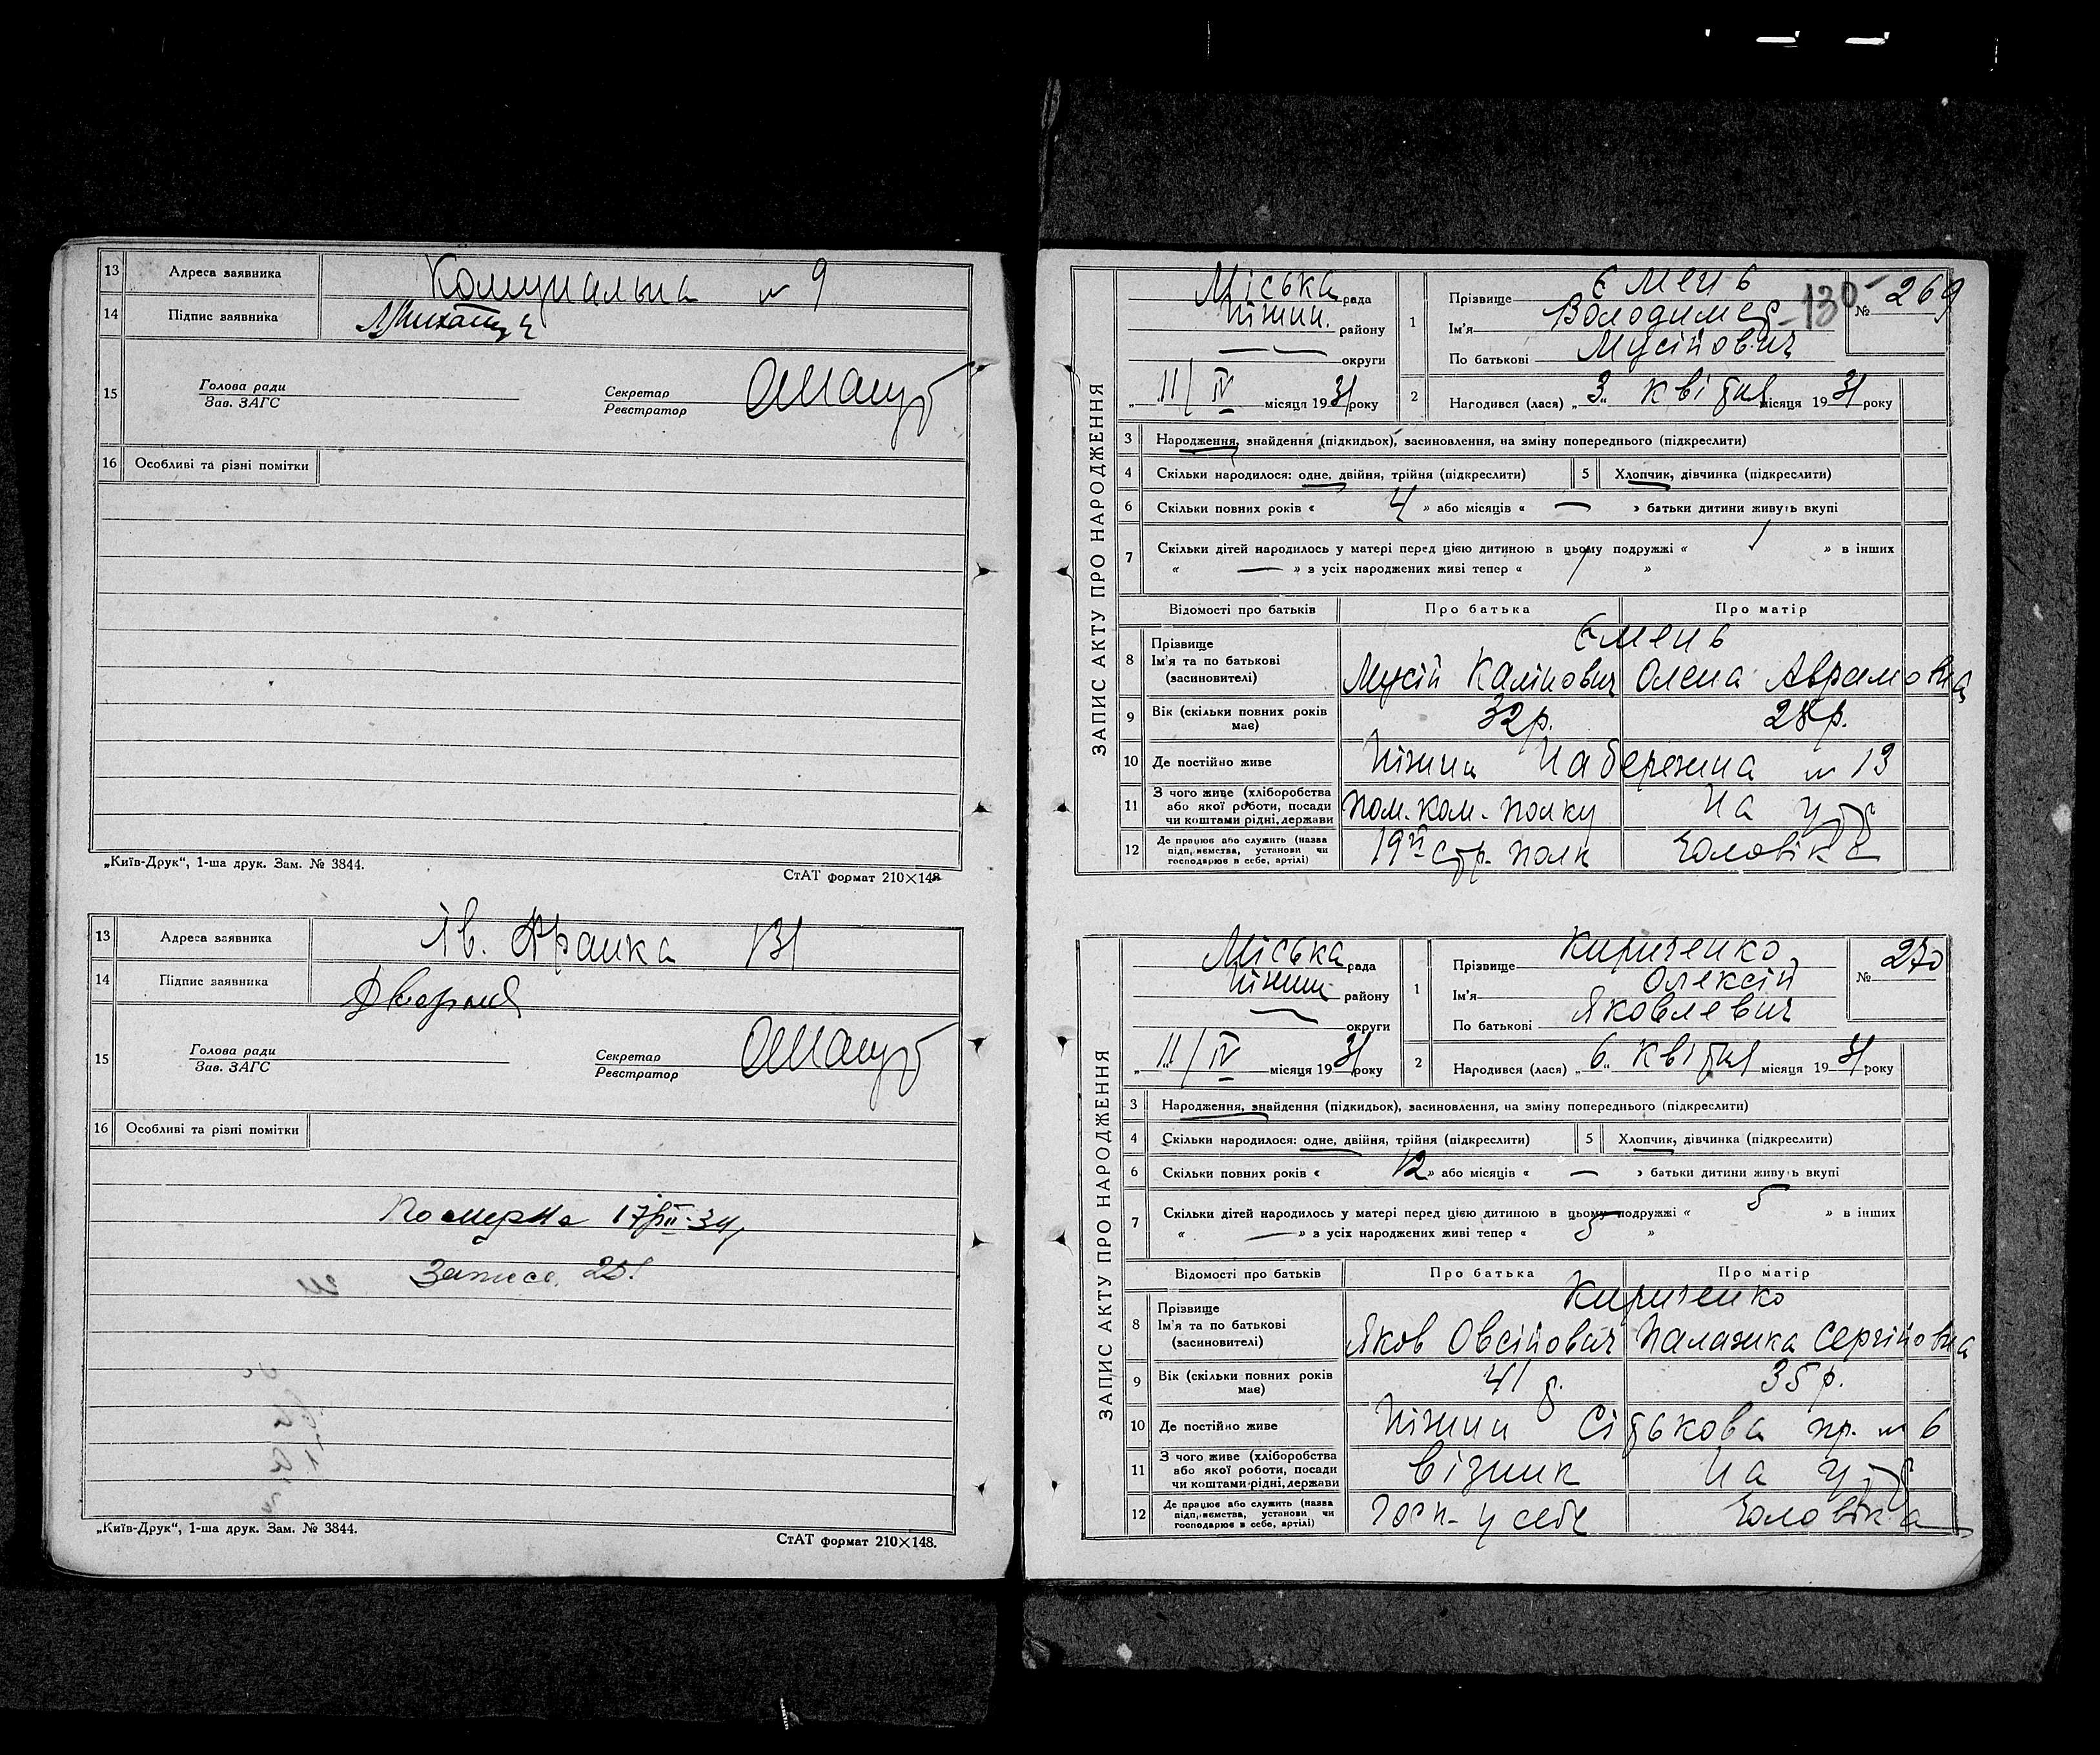 13 Адреса заявника Комунальна № 9
14 Підпис заявника
15 Голова ради Зав. ЗАГС Секретар Реєстратор
16 Особливі та різні помітки
„Київ-Друк“, 1-ша друк. Зам. № 3844.
СтАТ формат 210×148
13 Адреса заявника Ів. Франка 131
14 Підпис заявника
15 Голова ради Зав. ЗАГС Секретар Реєстратор
16 Особливі та різні помітки
Померла 34
„Київ-Друк“, 1-ша друк. Зам. № 3844.
СтАТ формат 210×148.
ЗАПИС АКТУ ПРО НАРОДЖЕННЯ
130
Міська рада
Ніжин. району
— округи
„11/IV місяця 1931 року
1 Прізвище Ємень
Ім'я Володимер
По батькові Мусійович
№ 269
2 Народився (лася) „3“ квітня місяця 1931 року
3 Народження, знайдення (підкидьок), засиновлення, на зміну попереднього (підкреслити)
4 Скільки народилося: одне, двійня, трійня (підкреслити) 5 Хлопчик, дівчинка (підкреслити)
6 Скільки повних років « 4 » або місяців « — » батьки дитини живуть вкупі
7 Скільки дітей народилось у матері перед цією дитиною в цьому подружжі « 1 » в інших
« — » з усіх народжених живі тепер « 1 »
Відомості про батьків Про батька Про матір
8 Прізвище Ємень
Ім'я та по батькові (засиновителі) Мусій Калінович Олена Аврамовна
9 Вік (скільки повних років має) 32 р. 28 р.
10 Де постійно живе Ніжин Набережна № 13
11 З чого живе (хліборобства або якої роботи, посади чи коштами рідні, держави пом. ком. полку На утр
12 Де працює або служить (назва підприємства, установи чи господарює в себе, артілі) 19й стр. полк чоловіка
ЗАПИС АКТУ ПРО НАРОДЖЕННЯ
Міська рада
Ніжин. району
— округи
„11/IV місяця 1931 року
1 Прізвище Кириченко
Ім'я Олексій
По батькові Яковлевич
№ 270
2 Народився (лася) „6“ квітня місяця 1931 року
3 Народження, знайдення (підкидьок), засиновлення, на зміну попереднього (підкреслити)
4 Скільки народилося: одне, двійня, трійня (підкреслити) 5 Хлопчик, дівчинка (підкреслити)
6 Скільки повних років « 12 » або місяців « — » батьки дитини живуть вкупі
7 Скільки дітей народилось у матері перед цією дитиною в цьому подружжі « 5 » в інших
« — » з усіх народжених живі тепер « 5 »
Відомості про батьків Про батька Про матір
8 Прізвище Кириченко
Ім'я та по батькові (засиновителі) Яков Овсійович Палажка Сергіївна
9 Вік (скільки повних років має) 41 р. 35 р.
10 Де постійно живе Ніжин Сітькова пр. № 6
11 З чого живе (хліборобства або якої роботи, посади чи коштами рідні, держави Візник На утр
12 Де працює або служить (назва підприємства, установи чи господарює в себе, артілі) Госп. у себе чоловіка